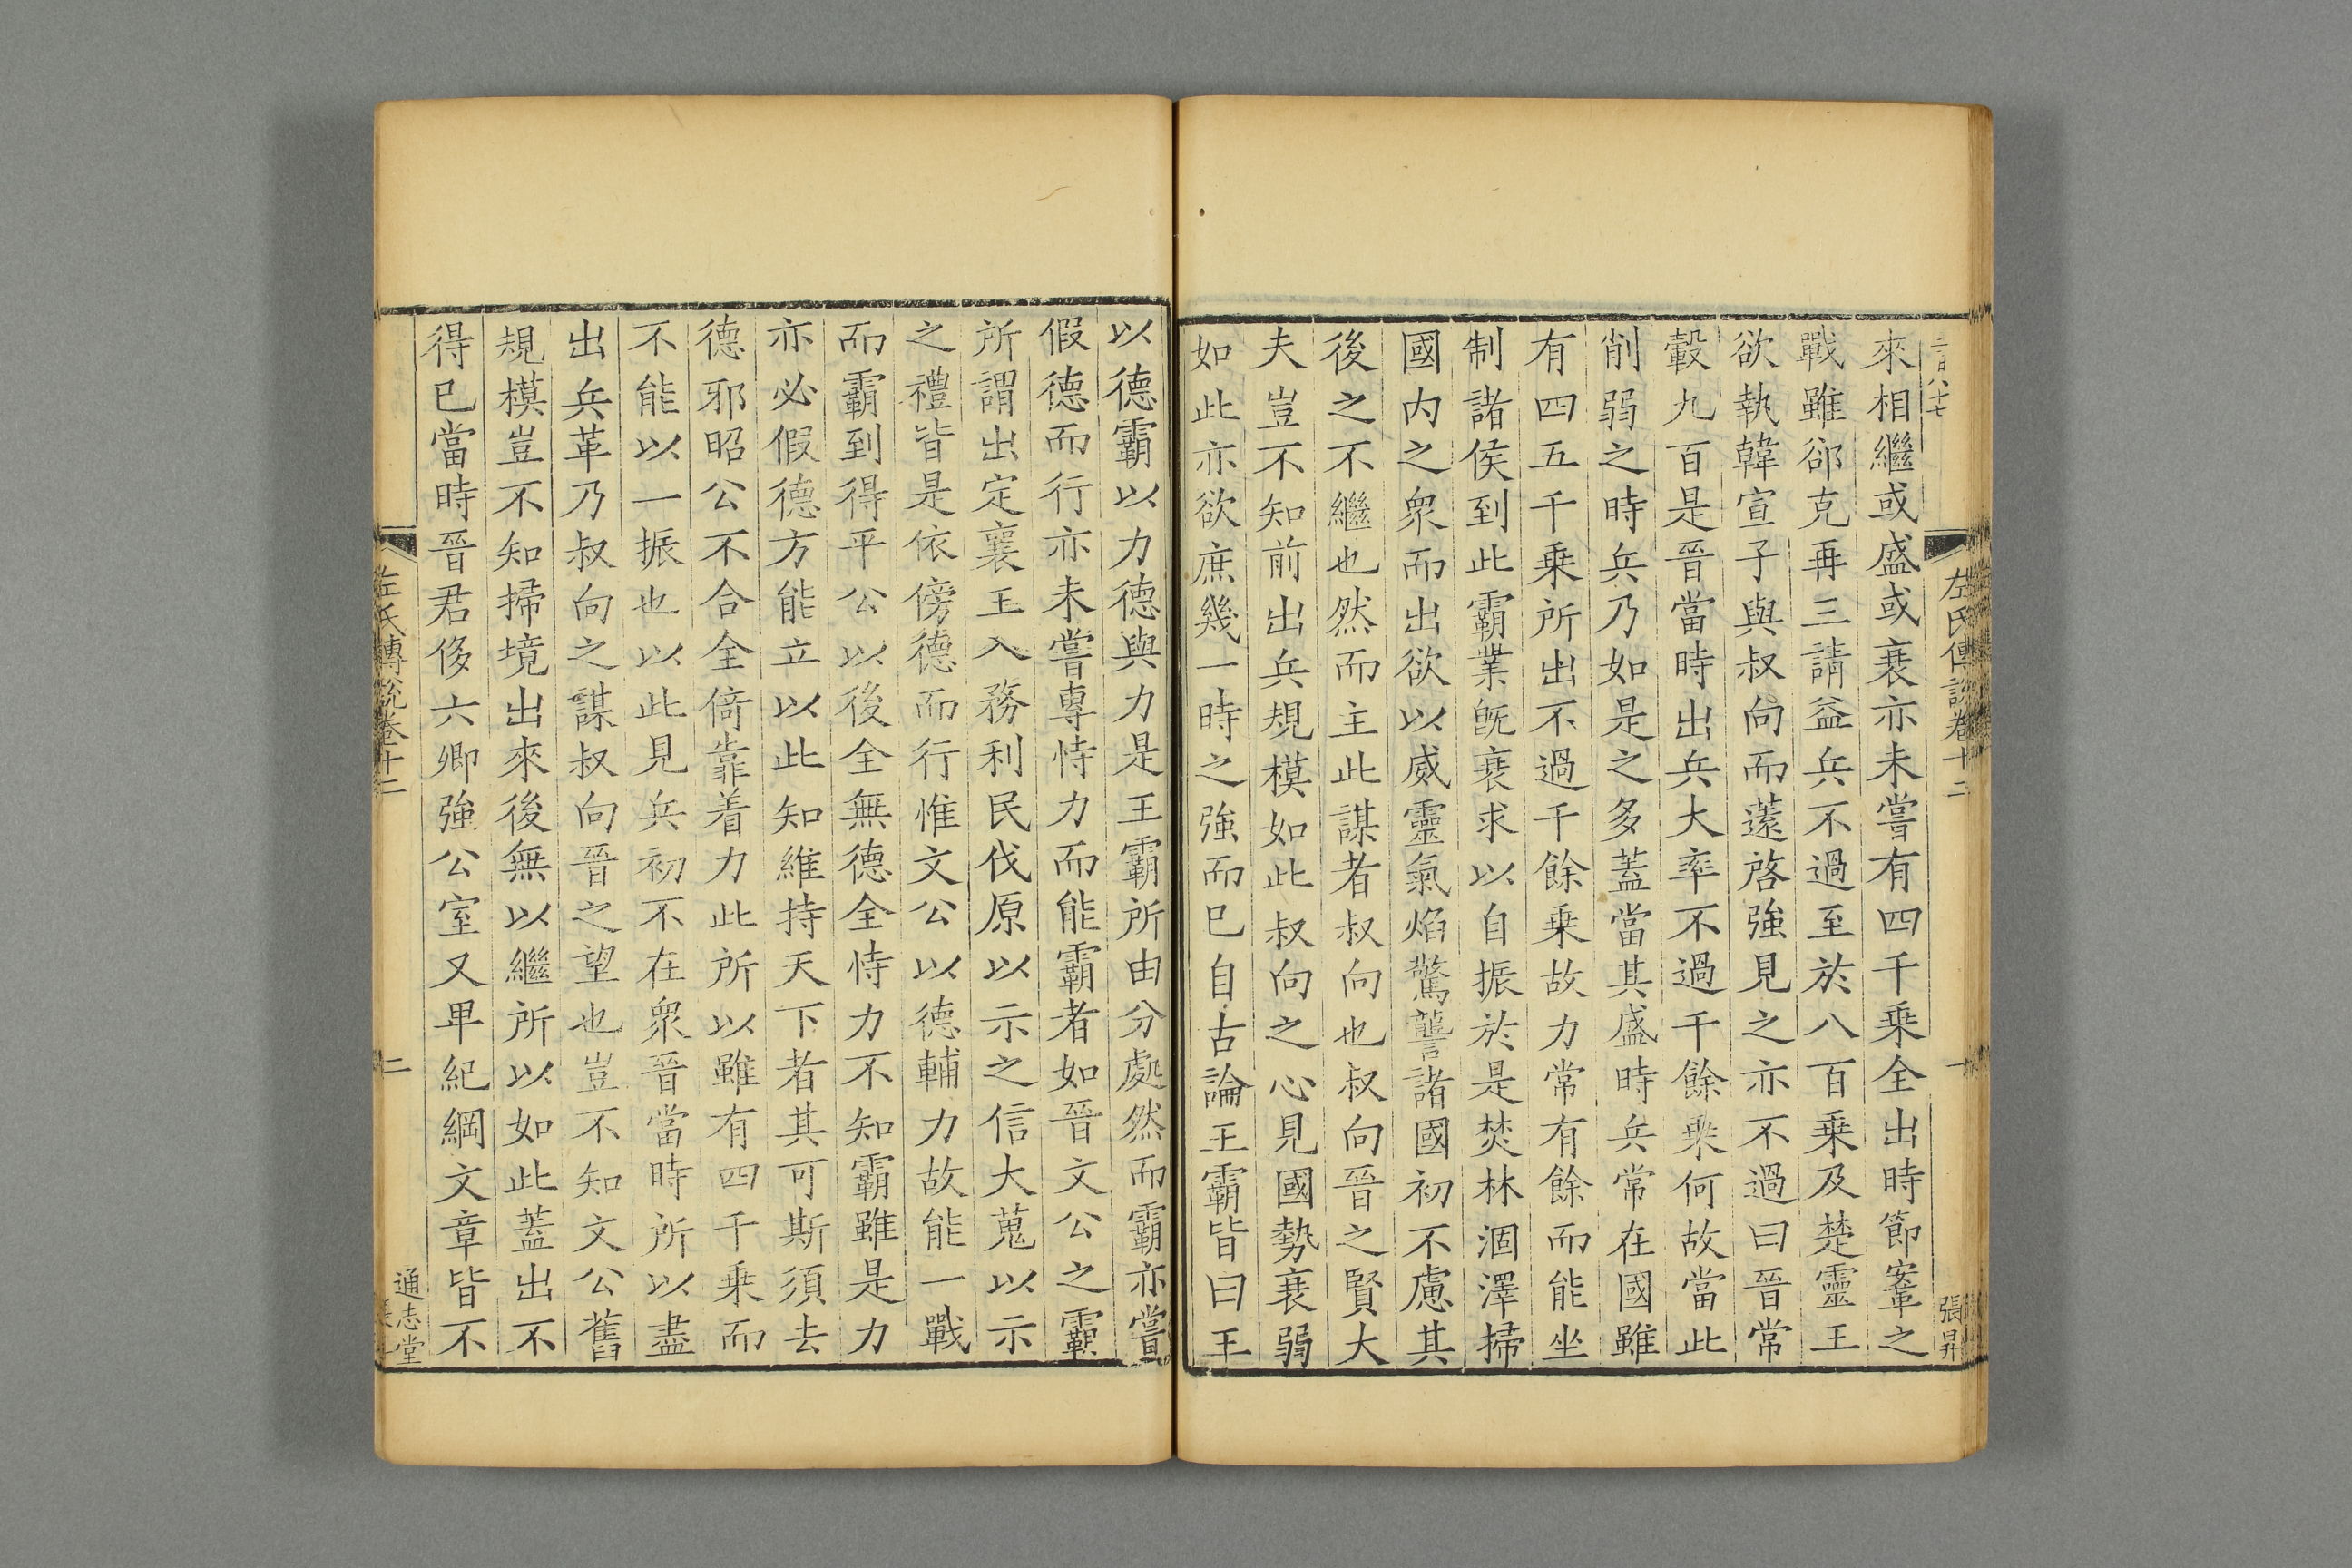 來相繼或盛或衰亦未嘗有四千乗全出時節鞌之
戰雖郤克再三請益兵不過至於八百乗及楚靈王
欲執韓宣子與叔向而薳啓強見之亦不過曰晉常
轂九百是晉當時出兵大率不過千餘乗何故當此
削弱之時兵乃如是之多蓋當其盛時兵常在國雖
有四五千乗所出不過千餘乗故力常有餘而能坐
制諸侯到此霸業旣衰求以自振於是焚林涸澤掃
國内之衆而出欲以威靈氣焰驚讋諸國初不慮其
後之不繼也然而主此謀者叔向也叔向晉之賢大
夫豈不知前出兵規模如此叔向之心見國勢衰弱
如此亦欲庶幾一時之強而已自古論王霸皆曰王
左氏傳說卷十二
一
張昇
以德霸以力德與力是王霸所由分處然而霸亦嘗
假德而行亦未嘗專恃力而能霸者如晉文公之霸
所謂出定襄王入務利民伐原以示之信大蒐以示
之禮皆是依傍德而行惟文公以德輔力故能一戰
而霸到得平公以後全無德全恃力不知霸雖是力
亦必假德方能立以此知維持天下者其可斯須去
德邪昭公不合全倚靠着力此所以雖有四千乗而
不能以一振也以此見兵初不在衆晉當時所以盡
出兵革乃叔向之謀叔向晉之望也豈不知文公舊
規模豈不知掃境出來後無以繼所以如此蓋出不
得已當時晉君侈六卿強公室又卑紀綱文章皆不
左氏傳說卷十二
二
通志堂